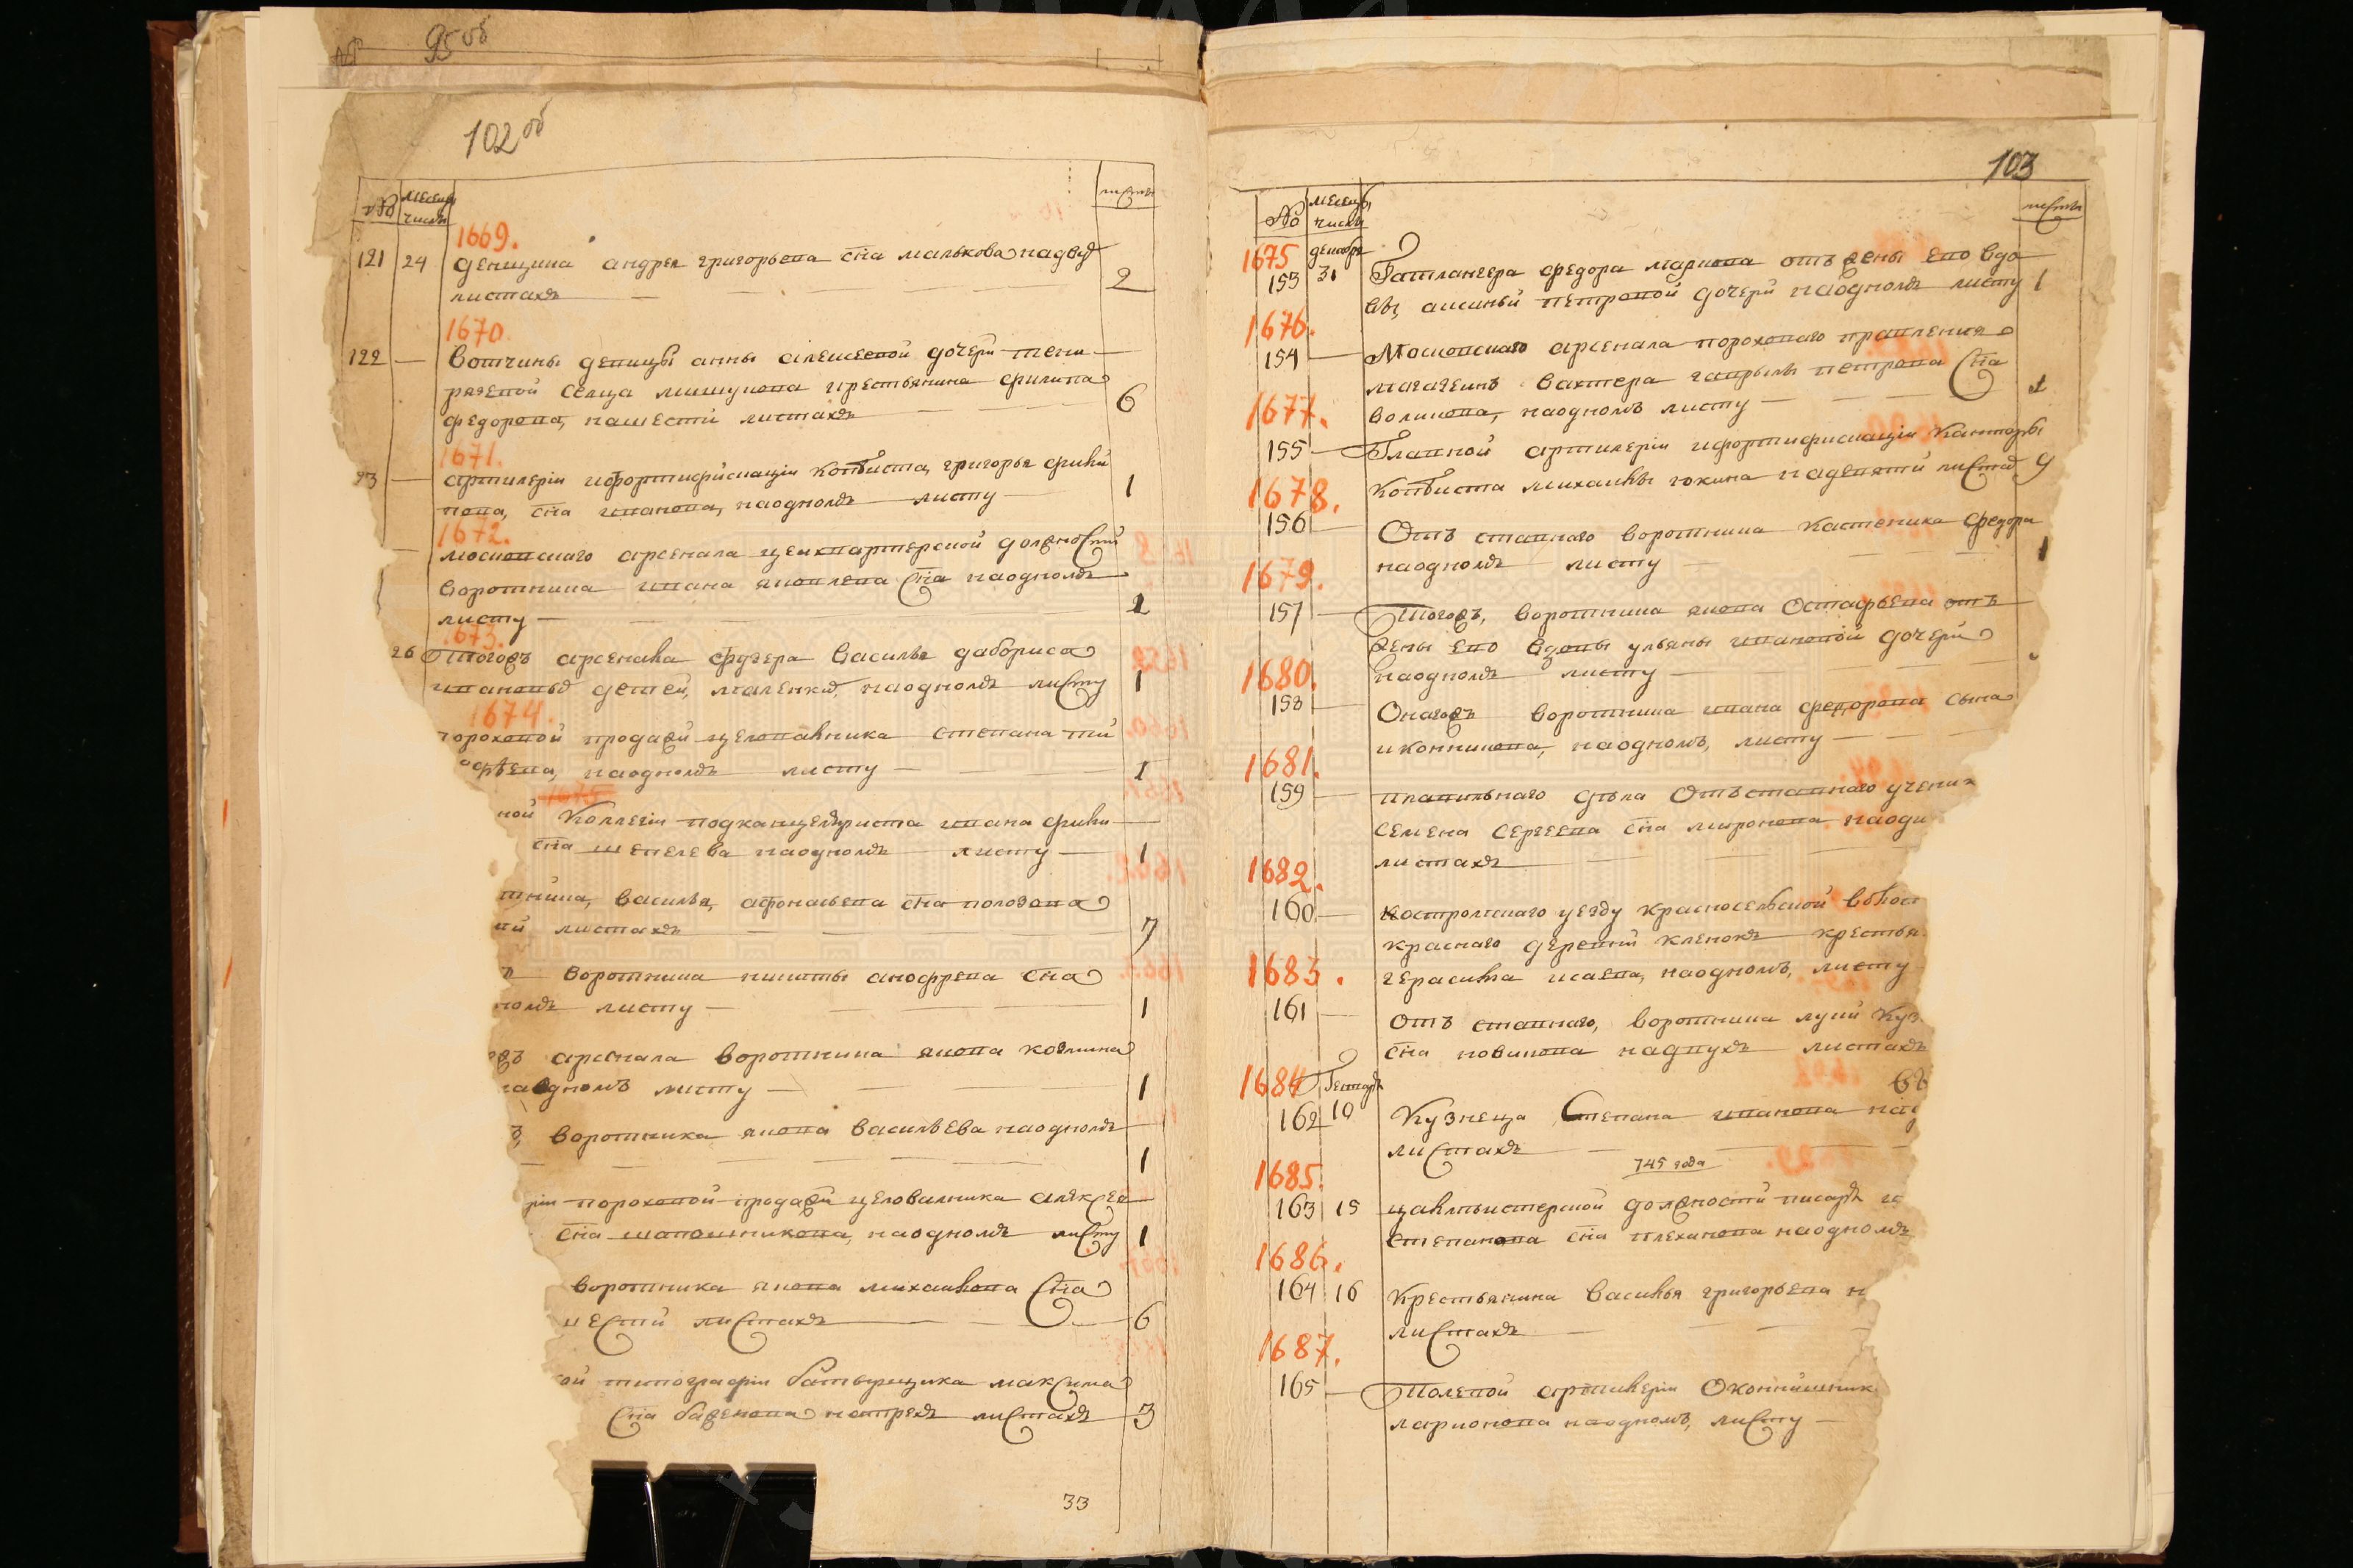 95 об
102 об
№ месецъ число листы
1669.
121 24 денщика андрея григорьева сна малькова надву
листахъ 2
1670.
122 вотчины девицы анны алексеевой дочери
селца крестьянина филипа
федорова, нашести листахъ 6
1671.
23 артилерїи ифортификацїи копеиста, григорья фили
пова, сна иванова, наодномъ листу 1
1672.
московскаго арсенала цеихвартерской должности
воротника ивана яковлева сна наодномъ
листу 1
1673.
26 Тогожъ арсенала василья даборисо
ивановыхъ детей, наодномъ листу 1
1674.
порохової продажи целовалника степана
наодномъ листу 1
1675
ной Коллегїи подканцеляриста ивана фили
сна шепелева наодномъ листу 1
тника, василья, афонасьева сна
листахъ 7
воротника никиты сна
номъ листу 1
арсенала воротника якова козмина
наодномъ листу 1
воротника якова васильева наодномъ
1
рїи пороховой продажи целовалника алексея
сна шапошникова, наодномъ листу 1
воротника якова михаилова сна
шести листахъ 6
ой типографїи батырщика максима
сна баженова натрехъ листахъ 3
33
103
№ месецъ число листы
1675 декабря
153 31 Гатлангера федора маркова отъ жены ево вдо
вы, петровой дочери наодномъ листу 1
1676.
154 Московскаго арсенала пороховаго правления
магазеинъ вахтера гаврилы петрова сна
волкова, наодномъ листу 1
1677.
155 Главной артилерїи ифортификацїи канторы
копеиста михаилы надевяти листах 9
1678.
156 Отъ ставнаго воротника федора
наодномъ листу 1
1679.
157 Тогожъ, воротника якова Остафьева отъ
жены ево вдовы ульяны ивановой дочери
наодномъ листу
1680.
158 Онагожъ воротника ивана федорова сына
иконникова, наодномъ, листу
1681.
159 плавильнаго дѣла Отъставнаго ученик
семена сергеева сна миронова наодн
листахъ
1682.
160 костромскаго уезду красносельской волост
краснаго деревни кленокъ крестья
герасима исаева, наодномъ, листу
1683.
161 отъ ставнаго, воротника луки куз
сна новикова надвухъ листахъ
1684 Генваръ
162 10 Кузнеца Степана иванова над
листахъ
745 года
1685.
163 15 должности писаря
степанова сна плеханова наодномъ
1686.
164 16 крестьянина василья григорьева н
листахъ
1687.
165 Полевой артилерїи Оконнишник
ларионова наодномъ, листу